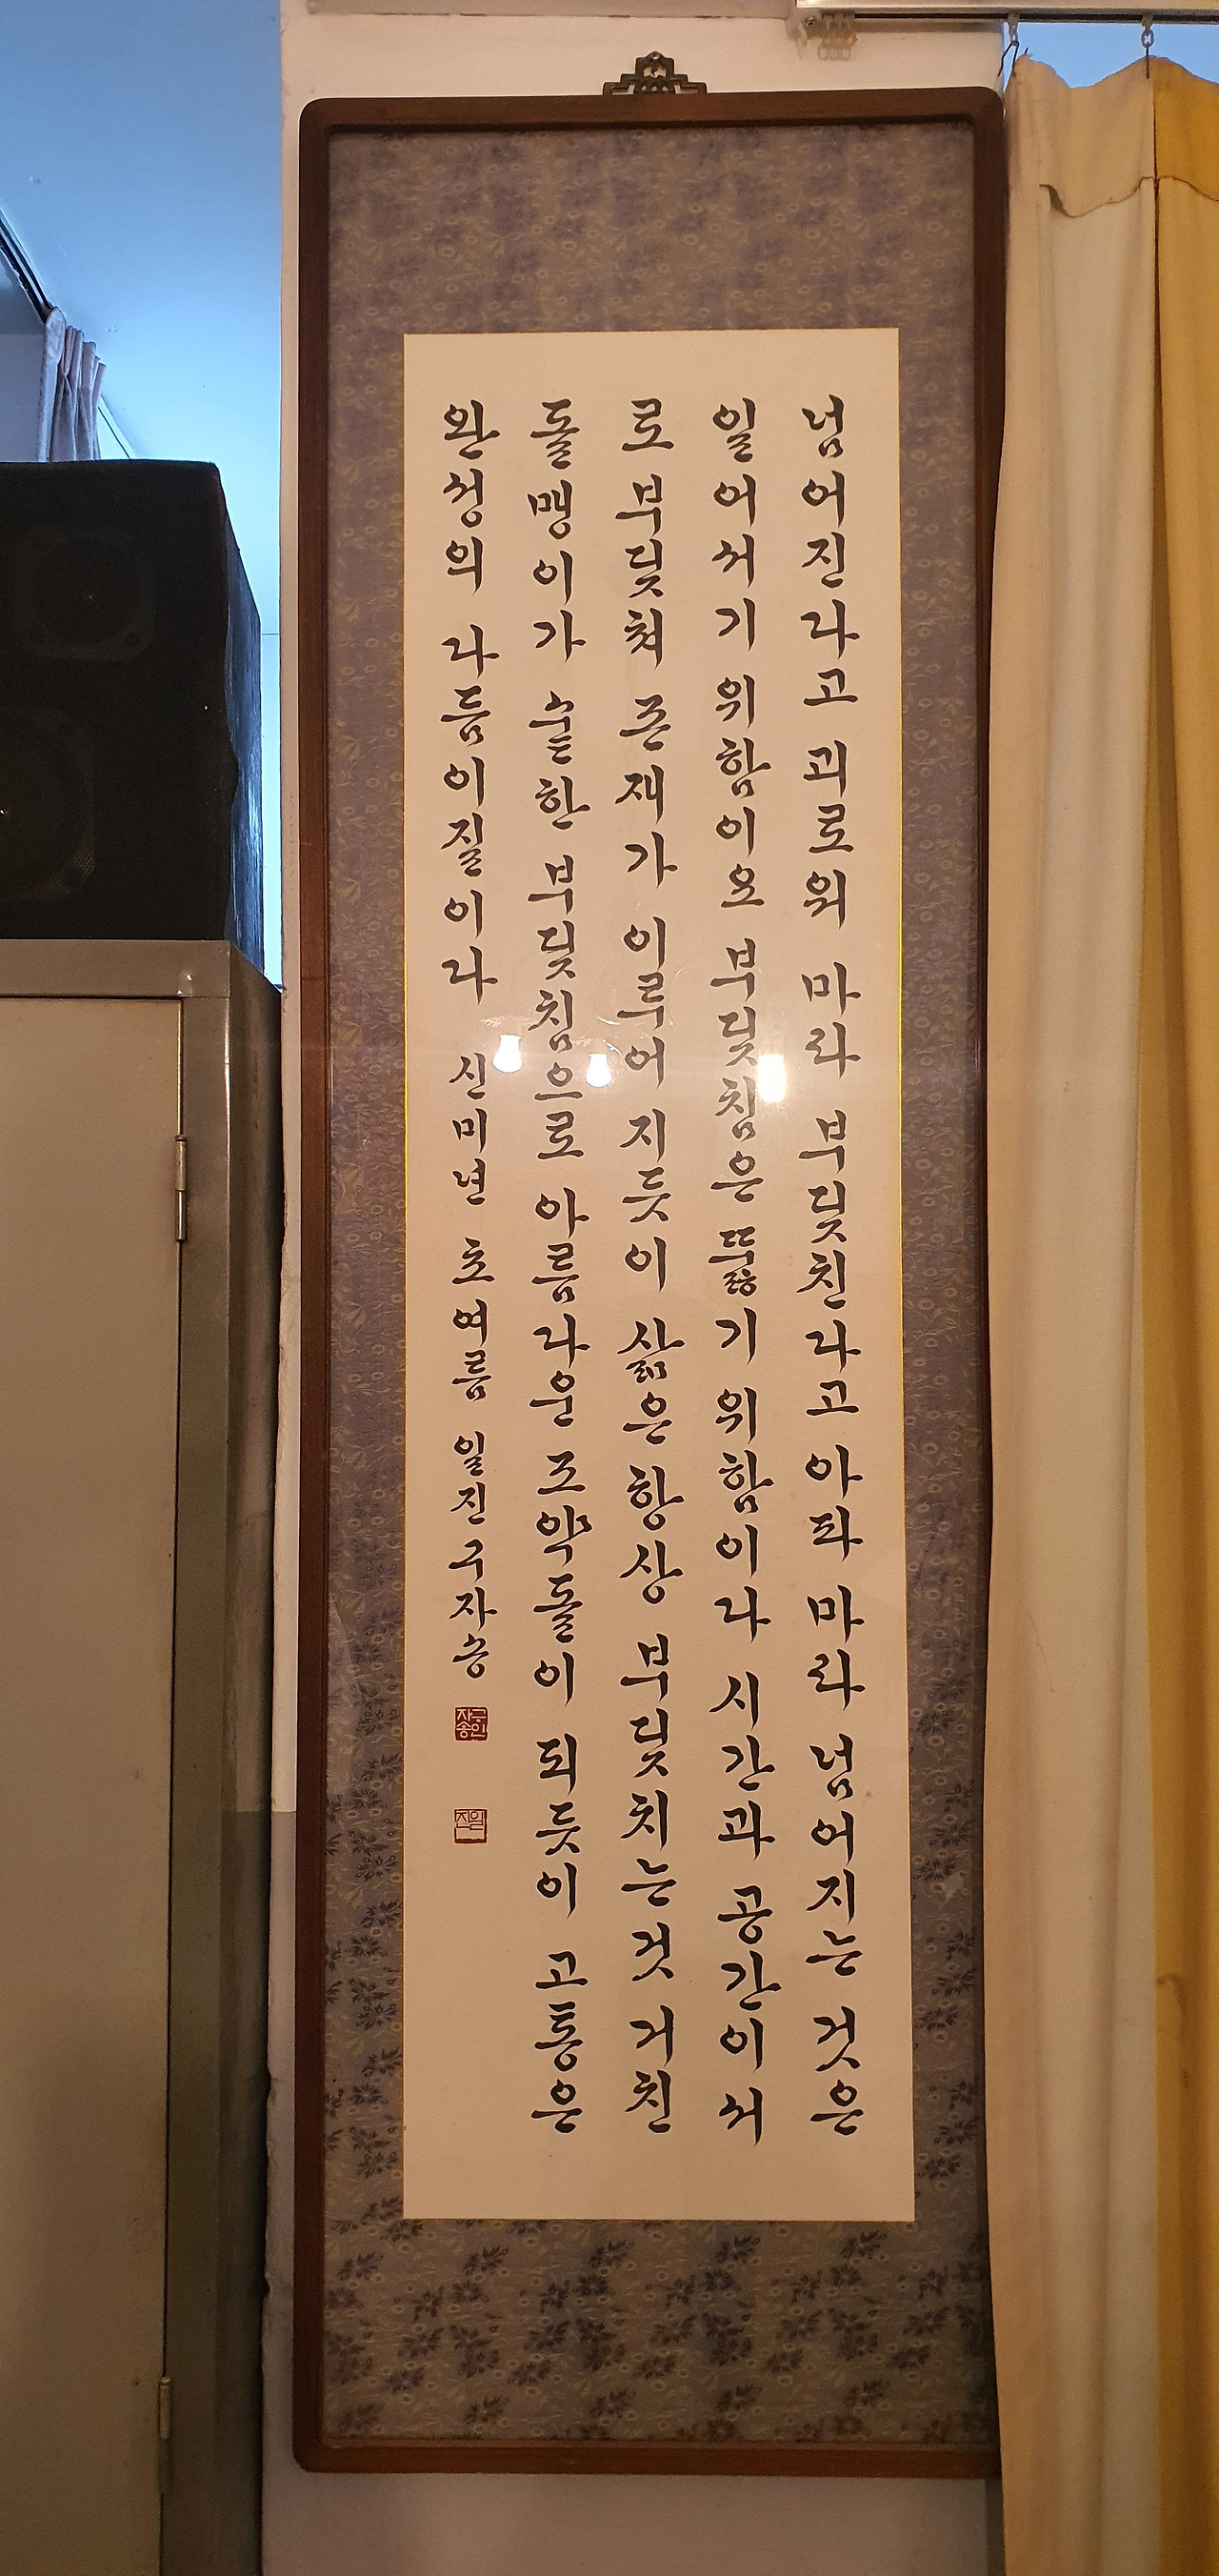 넘어진다고 괴로워 마라 부딪친다고 아파 마라 넘어지는 것은
일어서기 위함이요 부딪침은 뚫기 위함이다 시간과 공간이 서
로 부딪쳐 존재가 이루어 지듯이 삶은 항상 부딪치는것 거친
돌맹이가 숱한 부딪침으로 아름다운 조약돌이 되듯이 고통은
완성의 다듬이질이라 신미년 초여름 일진 구자송
구자송인
일진